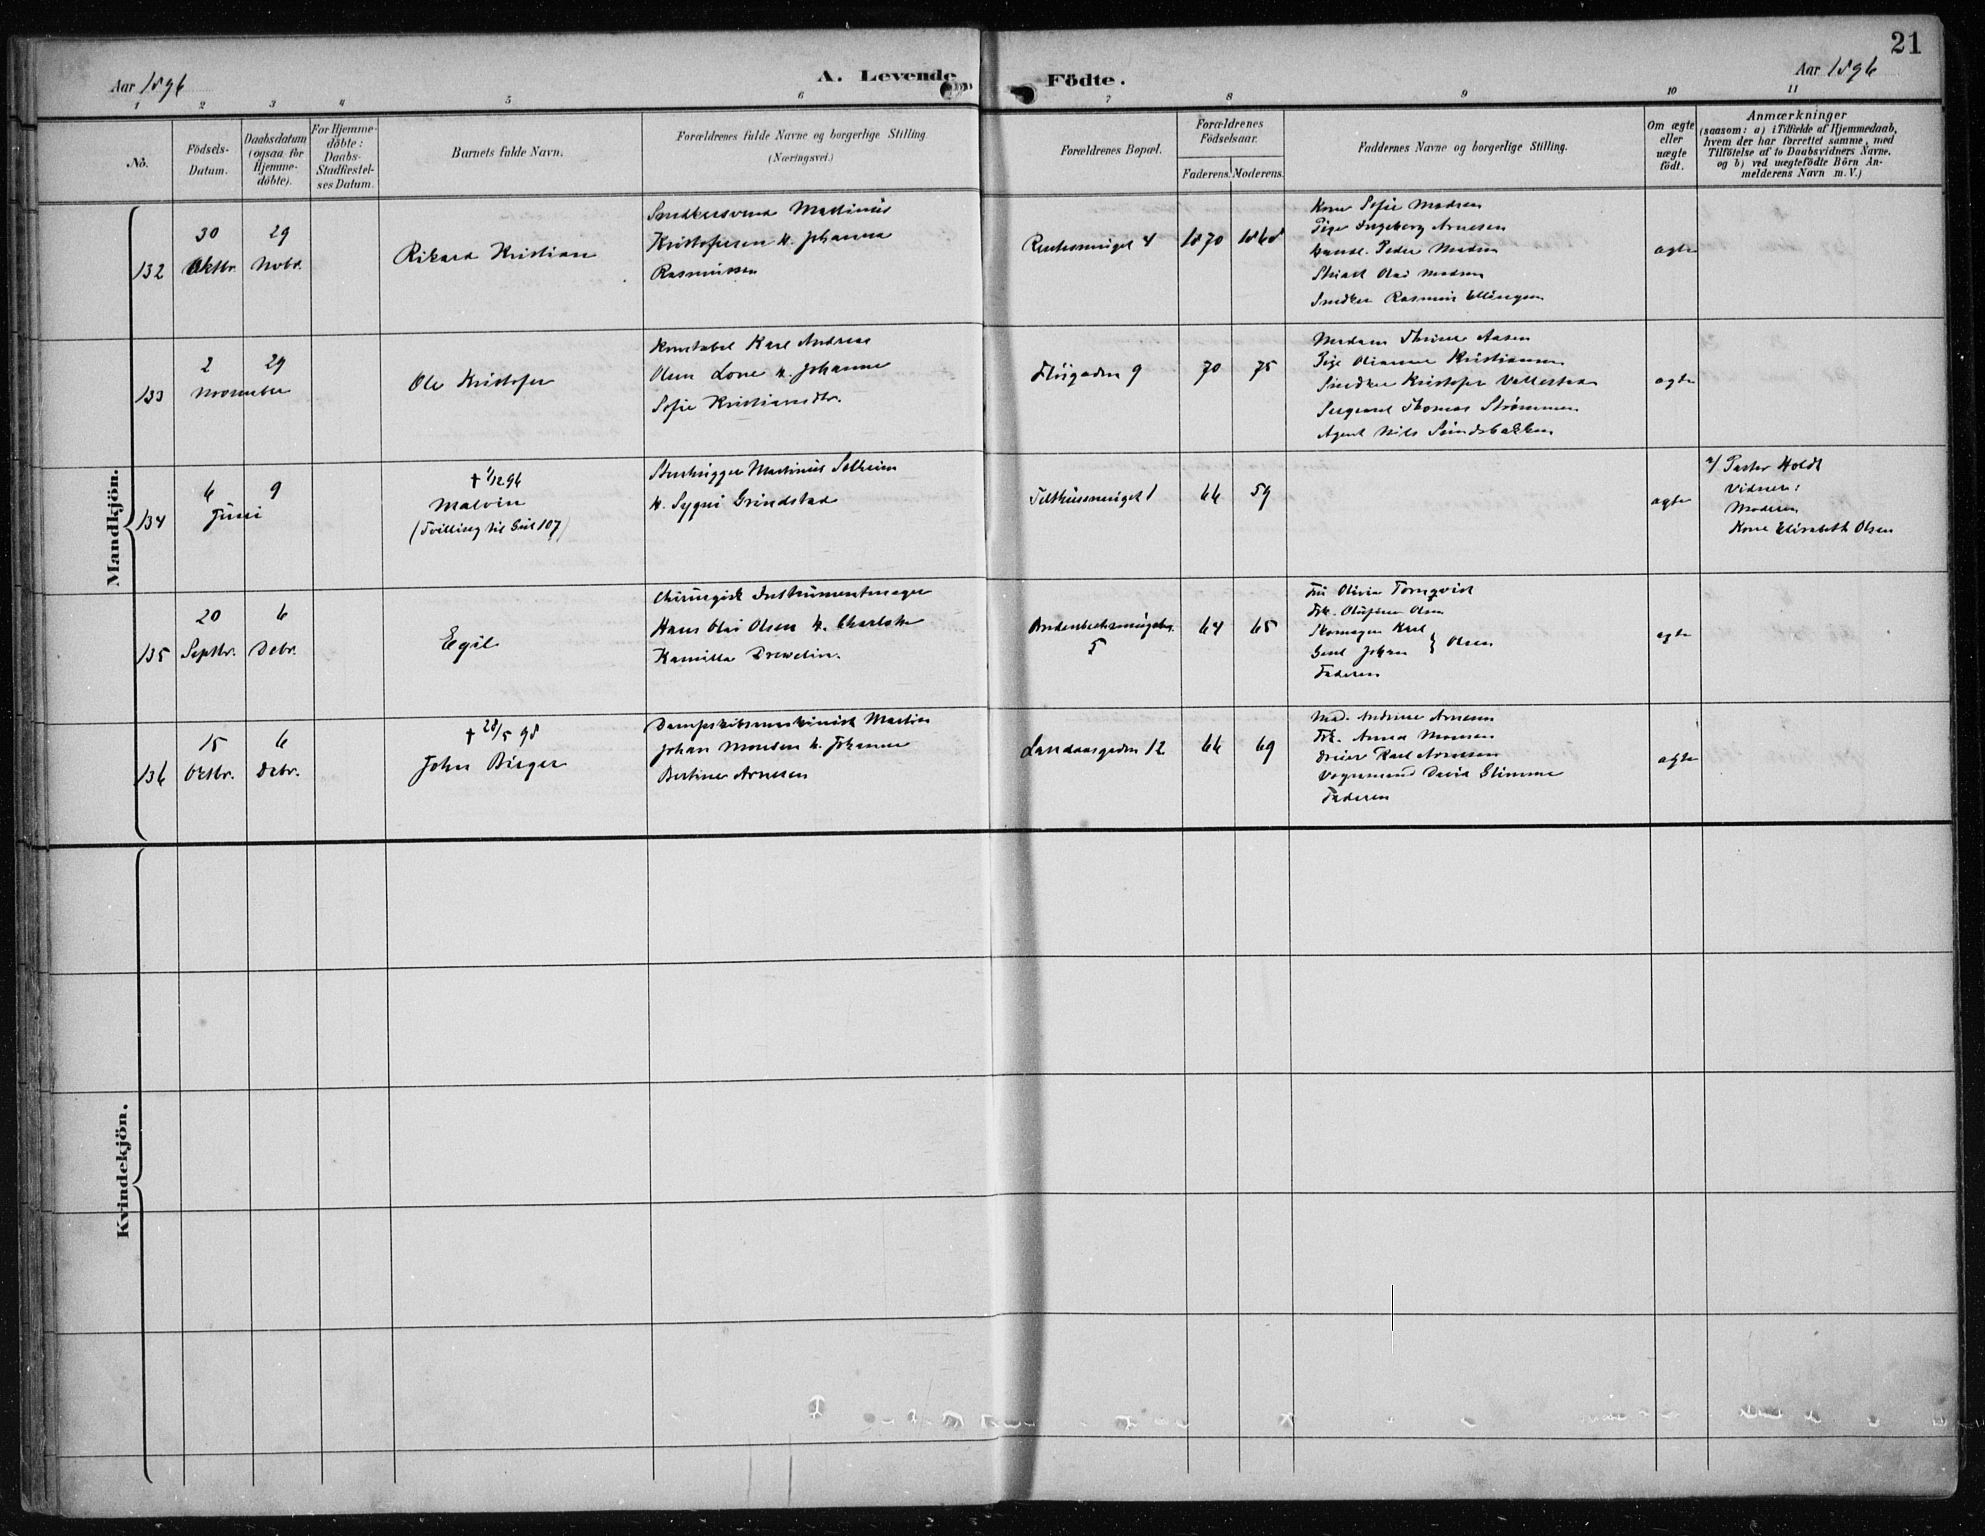 21
Aar 1896
A. Levende Födte.
Aar 1896
1 2 3 4 5 6 7 8 9 10 11
No.
Födsels-
Datum.
Daabsdatum
(ogsaa för
Hjemme-
döbte).
For Hjemme-
döbte:
Daabs-
Stadfæstel-
ses Datum.
Barnets fulde Navn.
Forældrenes fulde Navne og borgerlige Stilling.
(Næringsvei.)
Forældrenes Bopæl.
Forældrenes
Födselsaar.
Faderens. Moderens.
Faddernes Navne og borgerlige Stilling.
Om ægte
eller
uægte
födt.
Anmærkninger
(saasom: a) i Tilfælde af Hjemmedaab,
hvem der har forrettet samme, med
Tilföielse af to Daabsvidners Navne.
og b) ved uægtefödte Börn An-
melderens Navn m. V.)
Mandkjön.
132
30
Oktbr.
29
Novbr.
Rikard Kristian
Snedkersvend Martinius
Kristofersen h. Johanna
Rasmussen
4
1870
1868
Kone Sofie Madsen
Pige Ingeborg Arnesen
Peder Madsen
Olai Madsen
Snedker Rasmus Ellingsen
ægte
133
2
29
November
Ole Kristofer
Konstabel Karl Andreas
Olsen Lone h. Johanne
Sofie Kristiansdtr.
9
70
75
Madam Thrine Aasen
Pige Olianne Kristiansen
Snedker Kristofer
Sergeant Thomas Strömmen
Agent Nils Sundsbakken
ægte
134
6
9
Juni
† 1/12 96
Malvin
(Tvilling til 107)
Martinius Solheim
h. Sygni Grindstad
Telthussmuget 1
66
59
ægte
a/ Pastor Holdt
Vidner:
Moderen
Kone Elisabeth Olsen
135
20
Septbr.
6
Debr.
Egil
Chirurgisk Instrumentmager
Hans Olai Olsen h. Charlotte
Kamilla Drewelin.
5
64
65
Fru Olivia Tornqvist
Frk. Olufine Olsen
Skomager Karl
Johan } Olsen
Faderen
ægte
136
15
Oktbr.
6
Debr.
† 28/5 98
John Birger
Dampskibsmaskinist Martin
Johan Monsen h. Johanne
Bertine Arnesen
Landaasgaden 12
66
69
Mad. Andrine Arnesen
Frk. Anna Monsen
Dreier Karl Arnesen
Vognmand David Glimme
Faderen
ægte
Kvindekjön.